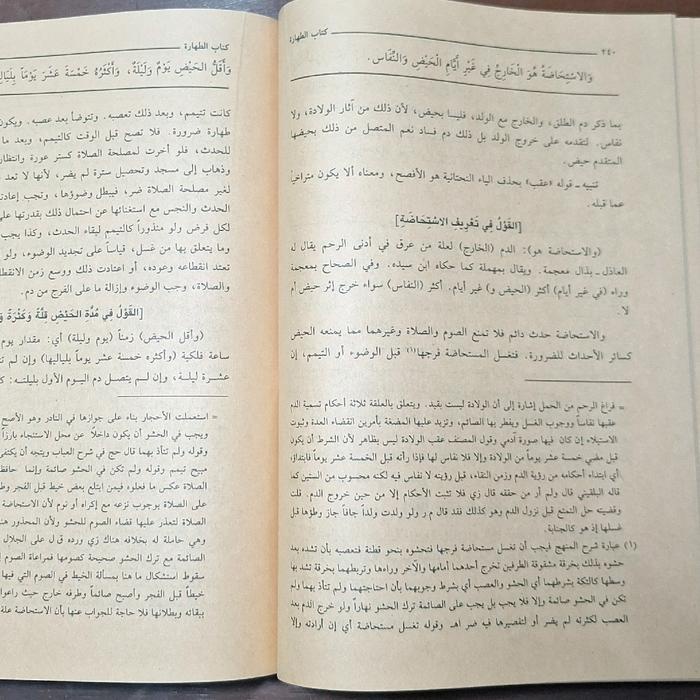 ٢٤٠ كتاب الطهارة
وَالاسْتِحَاضَةُ هُوَ الْخَارِجُ فِي غَيْرِ أَيَّامِ الْحَيْضِ وَالنِّفَاسِ.
بما ذكر دم الطلق، والخارج مع الولد، فليسا بحيض، لأن ذلك من آثار الولادة، ولا
نفاس. لتقدمه على خروج الولد بل ذلك دم فساد نعم المتصل من ذلك بحيضها
المتقدم حيض.
تنبيه ـ قوله «عقب» بحذف الياء التحتانية هو الأفصح، ومعناه ألا يكون متراخياً
عما قبله.
[القَوْلُ فِي تَعْرِيفِ الاسْتِحَاضَةِ]
(والاستحاضة هو): الدم (الخارج) لعلة من عرق في أدنى الرحم يقال له
العاذل ـ بذال معجمة. ويقال بمهملة كما حكاه ابن سيده. وفي الصحاح بمعجمة
وراء (في غير أيام) أكثر (الحيض و) غير أيام. أكثر (النفاس) سواء خرج إثر حيض أم
لا.
والاستحاضة حدث دائم فلا تمنع الصوم والصلاة وغيرهما مما يمنعه الحيض
كسائر الأحداث للضرورة. فتغسل المستحاضة فرجها(١) قبل الوضوء أو التيمم، إن
= فراغ الرحم من الحمل إشارة إلى أن الولادة ليست بقيد. ويتعلق بالعلقة ثلاثة أحكام تسمية الدم
عقبها نفاساً ووجوب الغسل ويفطر بها الصائم، وتزيد عليها المضغة بأمرين انقضاء العدة وثبوت
الاستبلاء إن كان فيها صورة آدمي وقول المصنف عقب الولادة ليس بظاهر لأن الشرط أن يكون
قبل مضي خمسة عشر يوماً من الولادة وإلا فلا نفاس لها فإذا رأته قبل الخمسة عشر يوماً فابتداؤه
أي ابتداء أحكامه من رؤية الدم وزمن النقاء، قبل رؤيته لا نفاس فيه لكنه محسوب من الستين كما
قاله البلقيني قال ولم أر من حققه قال زي فلا تثبت الأحكام إلا من حين خروج الدم. قلت
وقضيته حل التمتع قبل نزول الدم وهو كذلك فقد قال م ر ولو ولدت ولداً جافاً جاز وطؤها قبل
غسلها إذ هو كالجنابة.
(١) عبارة شرح المنهج فيجب أن تغسل مستحاضة فرجها فتحشوه بنحو قطنة فتعصبه بأن تشده بعد
حشوه بذلك بخرقة مشقوقة الطرفين تخرج أحدهما أمامها والآخر وراءها وتربطهما بخرقة تشد بها
وسطها كالتكة بشرطهما أي الحشو والعصب أي بشرط وجوبهما بأن احتاجتهما ولم تتأذ بهما ولم
تكن في الحشو صائمة وإلا فلا يجب بل يجب على الصائمة ترك الحشو نهاراً ولو خرج الدم بعد
العصب لكثرته لم يضر أو لتقصيرها فيه ضر اهـ وقوله تغسل مستحاضة أي إن أرادته وإلا
كتاب الطهارة
وَأَقَلُّ الْحَيْضِ يَوْمٌ وَلَيْلَةٌ، وَأَكْثَرُهُ خَمْسَةَ عَشَرَ يَوْماً
كانت تتيمم، وبعد ذلك تعصبه. وتتوضأ بعد عصبه. ويكون
طهارة ضرورة. فلا تصح قبل الوقت كالتيمم، وبعد ما
للحدث، فلو أخرت لمصلحة الصلاة كستر عورة وانتظار
وذهاب إلى مسجد وتحصيل سترة لم يضر، لأنها لا تعد
لغير مصلحة الصلاة ضر، فيبطل وضوؤها، وتجب إعادته
الحدث والنجس مع استغنائها عن احتمال ذلك بقدرتها على
لكل فرض ولو منذوراً كالتيمم لبقاء الحدث، وكذا يجب
وما يتعلق بها من غسل، قياساً على تجديد الوضوء، ولو
تعتد انقطاعه وعوده، أو اعتادت ذلك ووسع زمن الانقطاع
والصلاة، وجب الوضوء وإزالة ما على الفرج من دم.
[القَوْلُ فِي مُدَّةِ الحَيْضِ قِلَّةً وَكَثْرَةً
(وأقل الحيض) زمناً (يوم وليلة) أي: مقدار يوم
ساعة فلكية (وأكثره خمسة عشر يوماً بلياليها) وإن لم
عشرة ليلة، وإن لم يتصل دم اليوم الأول بليلته:
= استعملت الأحجار بناء على جوازها في النادر وهو الأصح
ويجب في الحشو أن يكون داخلاً عن محل الاستنجاء بارزاً
وقوله ولم تتأذ بهما قال حج في شرح العباب ويتجه أن يكتفى
مبيح تيمم وقوله ولم تكن في الحشو صائمة وإنما حافظوا
الصلاة عكس ما فعلوه فيمن ابتلع بعض خيط قبل الفجر
على الصلاة بوجوب نزعه مع إكراه أو نوم لأن الاستحاضة
الصوم لتعذر عليها قضاء الصوم للحشو ولأن المحذور
وهي حاملة له بخلافه هناك زي ورده ق ل على الجلال
الصائمة مع ترك الحشو صحيحة كصومها فمراعاة الصوم
سقوط استشكال ما هنا بمسألة الخيط في الصوم التي فيها
خيطاً قبل الفجر وأصبح صائماً وطرفه خارج حيث راعوا
ببقائه وبطلانها فلا حاجة للجواب عنها بأن الاستحاضة علة